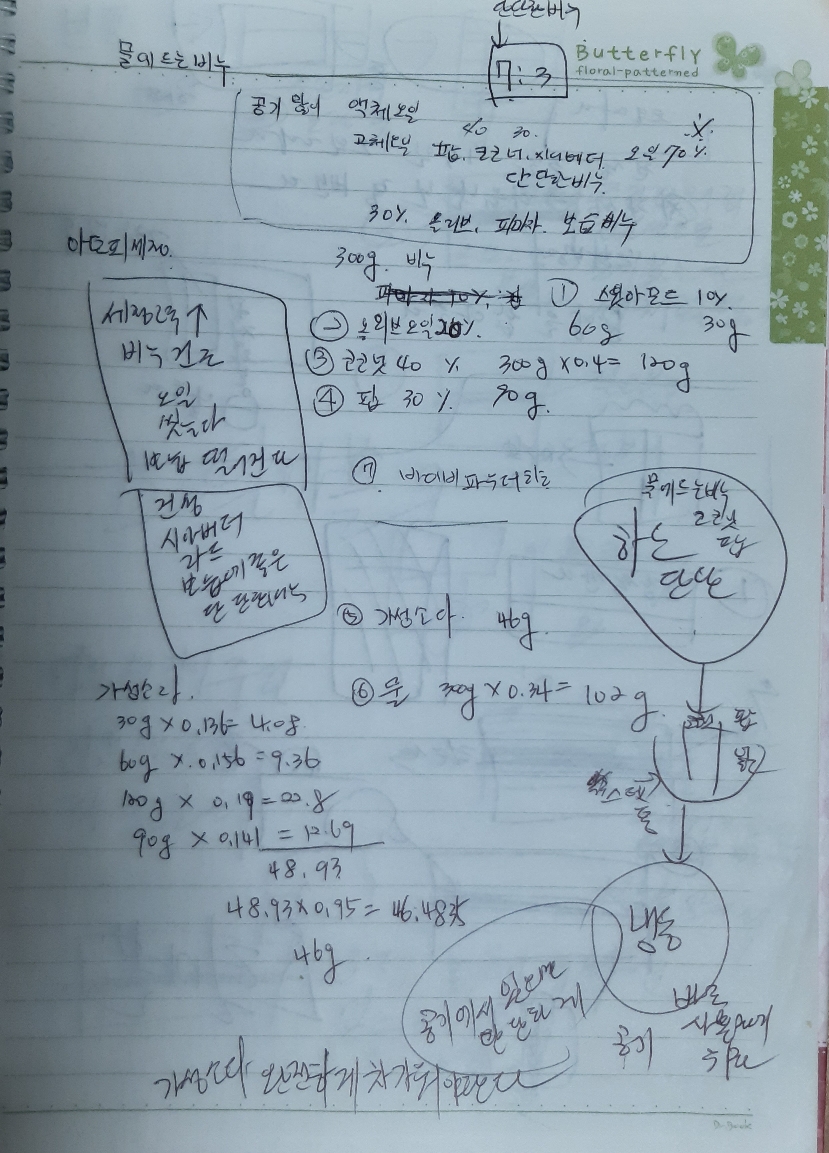 단단한비누
Butterfly
floral-patterned
물에 뜨는비누
7:3
공기 액체오일
40 30.
고체오일 팜. 코코넛. 시어버터 오일 70%
단단한비누
30% 올리브. 피마자. 보습비누
아토피세제.
300g. 비누
① 스윗아몬드 10%.
세정력↑
60g 30g
② 올리브오일 20%.
비누 건조
③ 코코넛 40 % 300g×0.4= 120g
④ 팜 30 %. 90g.
오일
씻는다
보습 떨어진다
⑦
물에뜨는비누
건성
코코넛
시어버터
하드 팜
라드
단단
보습에 좋은
단단한비누
⑤ 가성소다. 46g
가성소다.
⑥ 물 30g×0.34= 102g.
30g×0.136= 4.08.
팜
60g ×.0.156=9.36
120g × 0.19=22.8
90g × 0.141 = 12.69
48.93
48.93×0.95= 46.4835
냉동
46g.
공기에서
단단하게
바로
공기
가성소다 완전하게